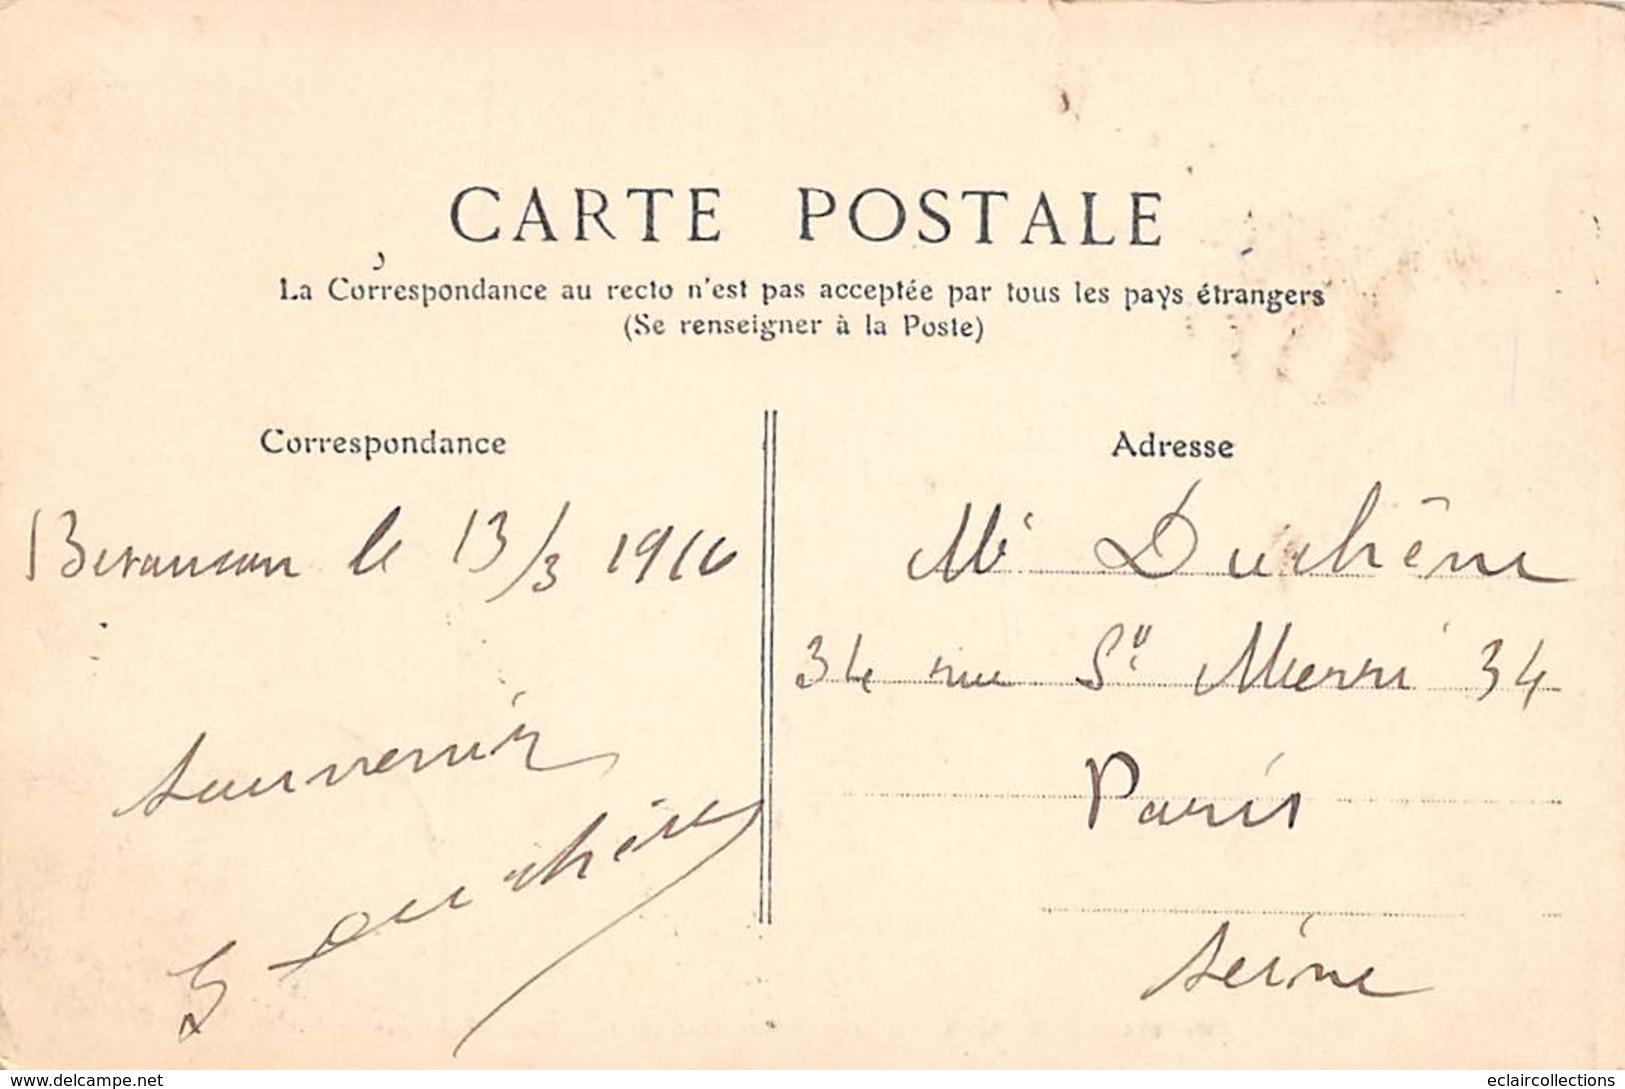 CARTE POSTALE
La Correspondance au recto n'est pas acceptée par tous les pays étrangers
(Se renseigner à la Poste)
Correspondance
Besancon le 13/3 1916
Souvenir
Duchêne
Adresse
Mr Duchêne
34 rue St Merri 34
Paris
Seine
www.delcampe.net
eclaircollections